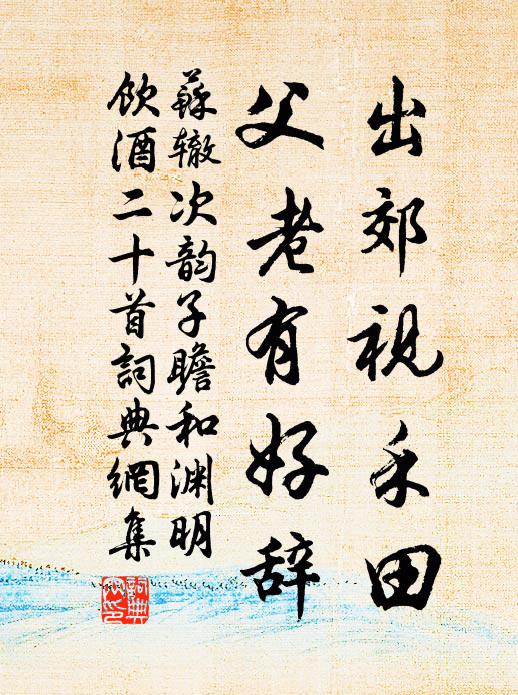 出郊視禾田
父老有好辞
蘇辙次韵子瞻和渊明
飲酒二十首詞典網集